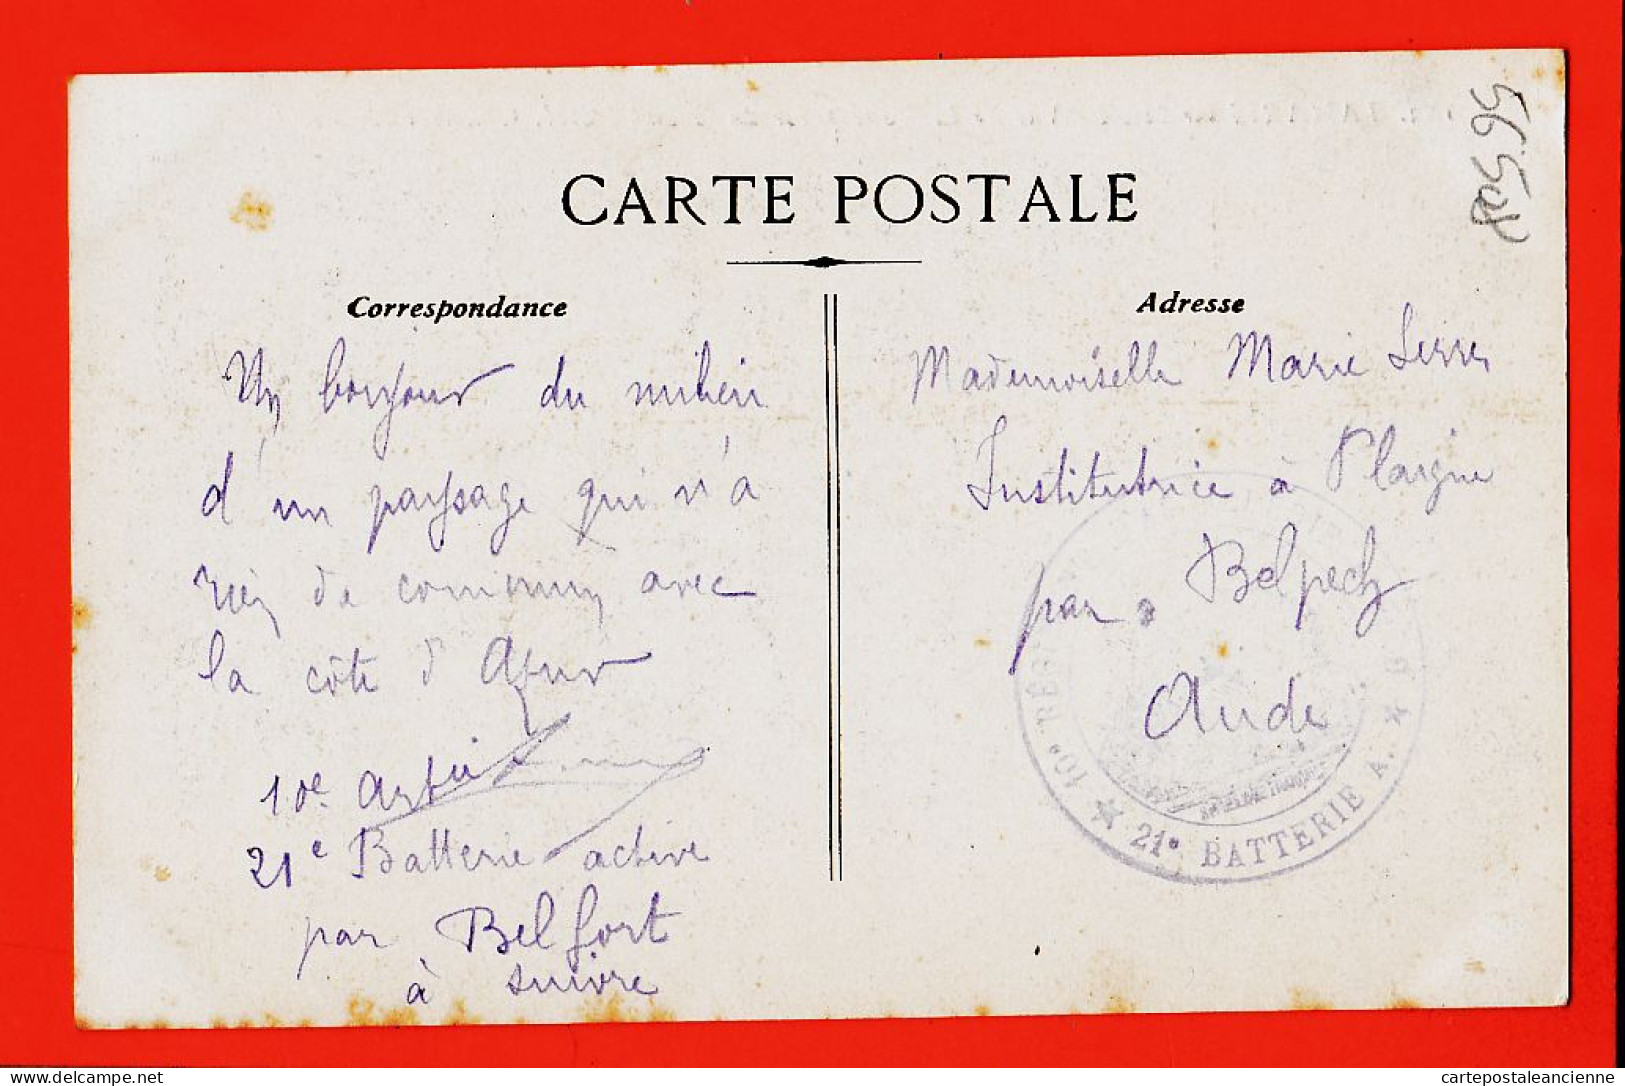 56 Sup
CARTE POSTALE
Correspondance
Un bonjour du milieu
d'un paysage qui n'a
rien de commun avec
la côte d'Azur
10e Arti
21e Batterie active
par Belfort
à suivre
Adresse
Mademoiselle Marie Serres
Institutrice à Plaigne
par Belpech
Aude
10e RÉG
★ 21e BATTERIE A. ★
www.delcampe.net
cartepostaleancienne
cartepostaleancienne